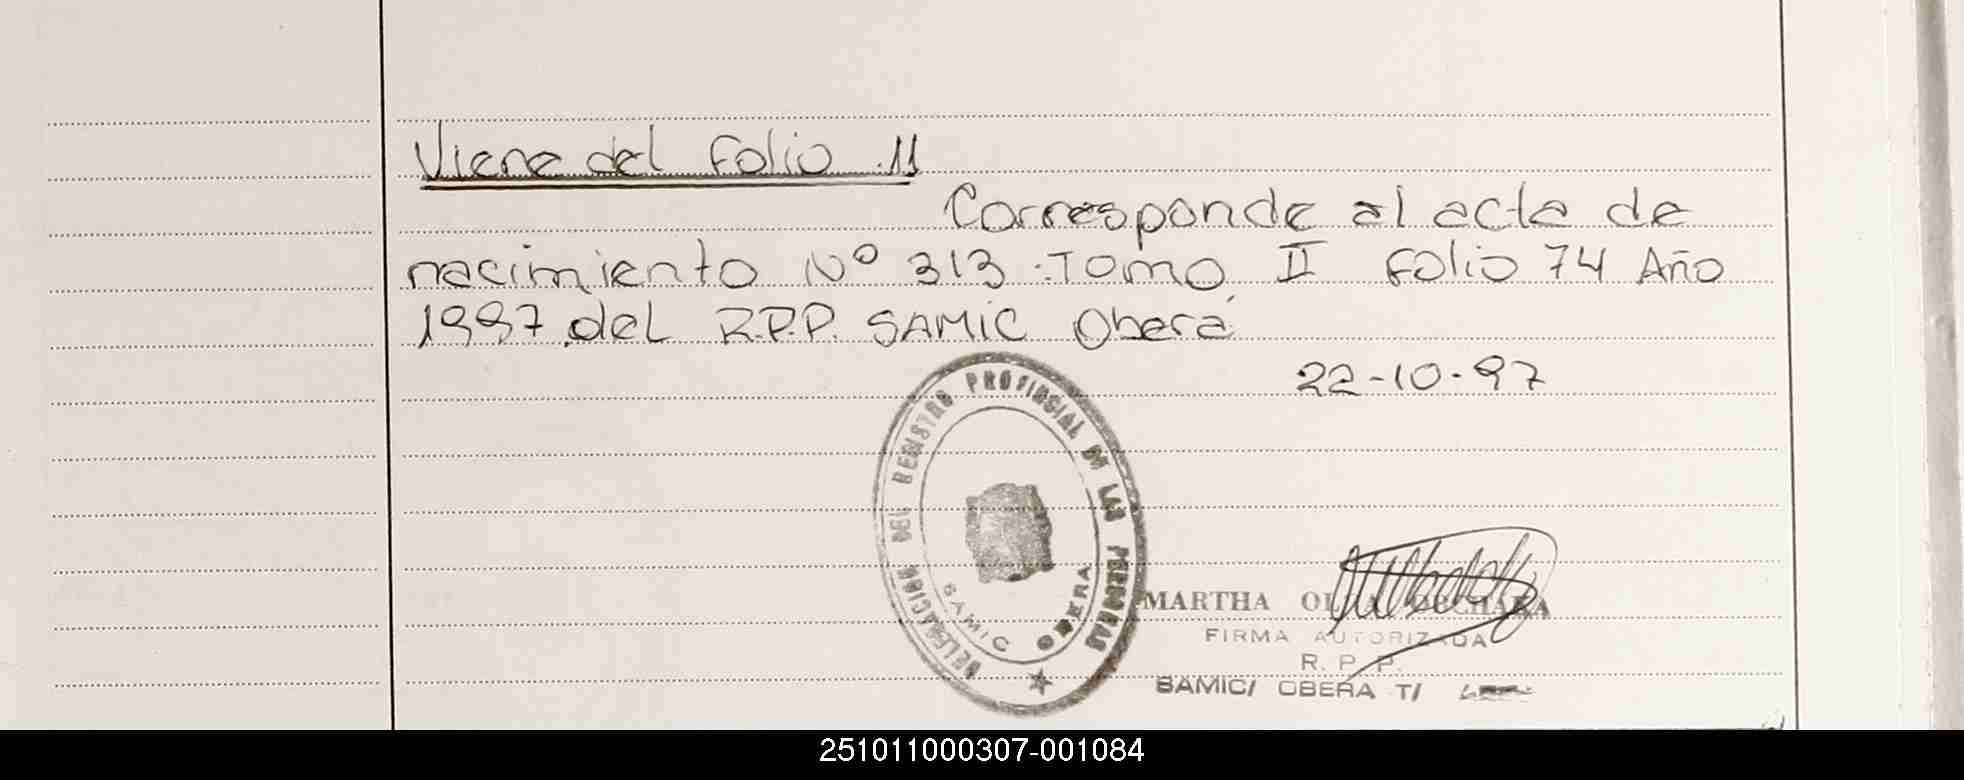 Viene del Folio 11
Corresponde al acta de
nacimiento Nº 313 Tomo II Folio 74 Año
1997 del R.P.P. SAMIC Obera
22-10-97
DELEGACION DEL REGISTRO PROVINCIAL DE LAS PERSONAS
SAMIC OBERA
MARTHA
FIRMA AUTORIZADA
R. P. P.
SAMIC/ OBERA T/
251011000307-001084